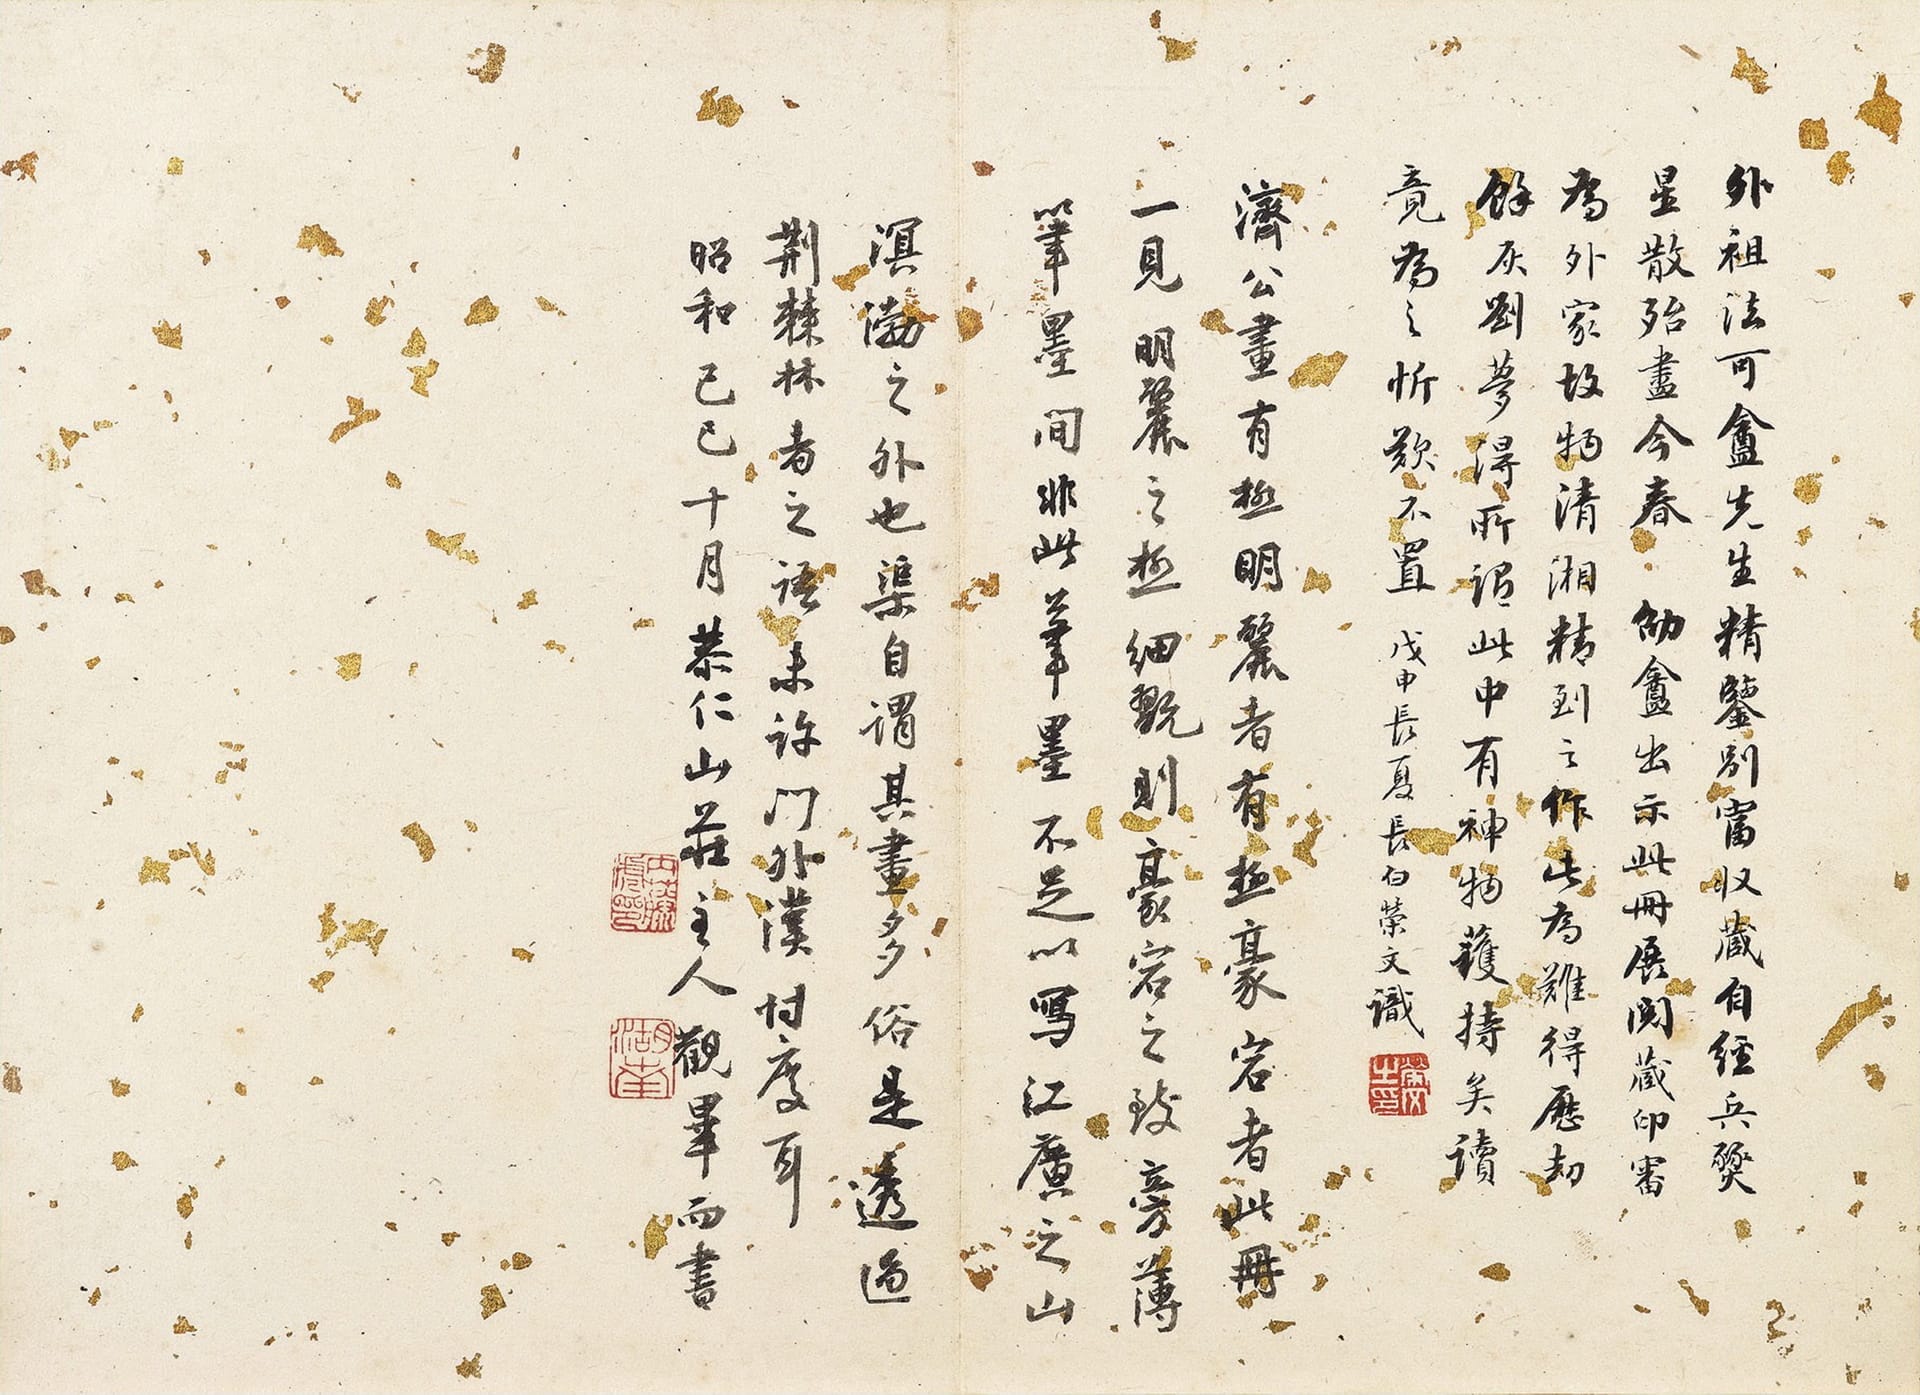 外祖法可盦先生精鑒別富收藏自經兵燹
星散殆盡今春 劬盦出示此冊展閱藏印審
為外家故物清湘精到之作此為難得歷劫
餘灰劉夢得所謂此中有神物護持矣讀
竟為之忻歎不置 戊申長夏長白榮文識
濟公畫有極明麗者有極豪宕者此冊
一見明麗之極細翫則豪宕之致旁薄
筆墨間非此筆墨不足以寫江廣之山
溟渤之外也渠自謂其畫多俗是透過
荆棘林者之語未許門外漢忖度耳
昭和己巳十月恭仁山莊主人觀畢而書
內藤虎印
湖南